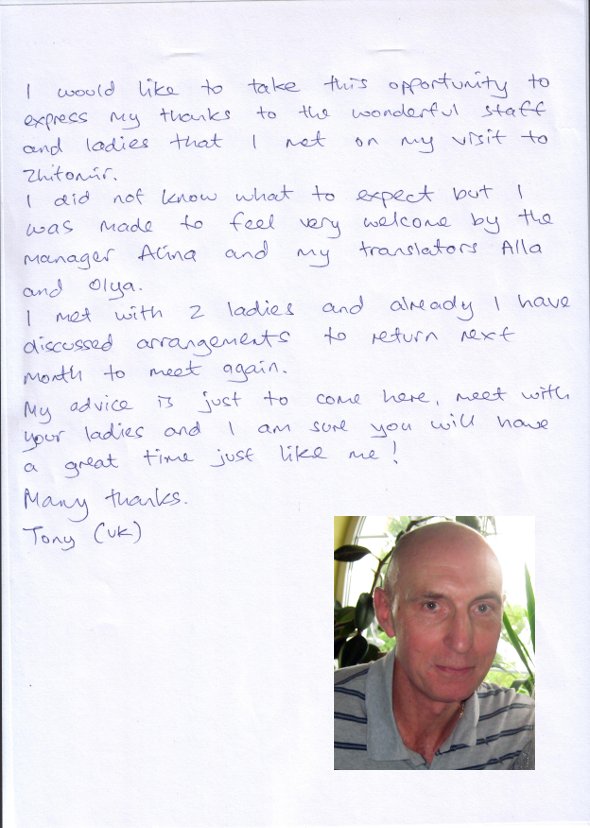 I would like to take this opportunity to
express my thanks to the wonderful staff
and ladies that I met on my visit to
Zhitomir.
I did not know what to expect but I
was made to feel very welcome by the
manager Alina and my translators Alla
and Olya.
I met with 2 ladies and already I have
discussed arrangements to return next
month to meet again.
My advice is just to come here, meet with
your ladies and I am sure you will have
a great time just like me!
Many thanks.
Tony (UK)